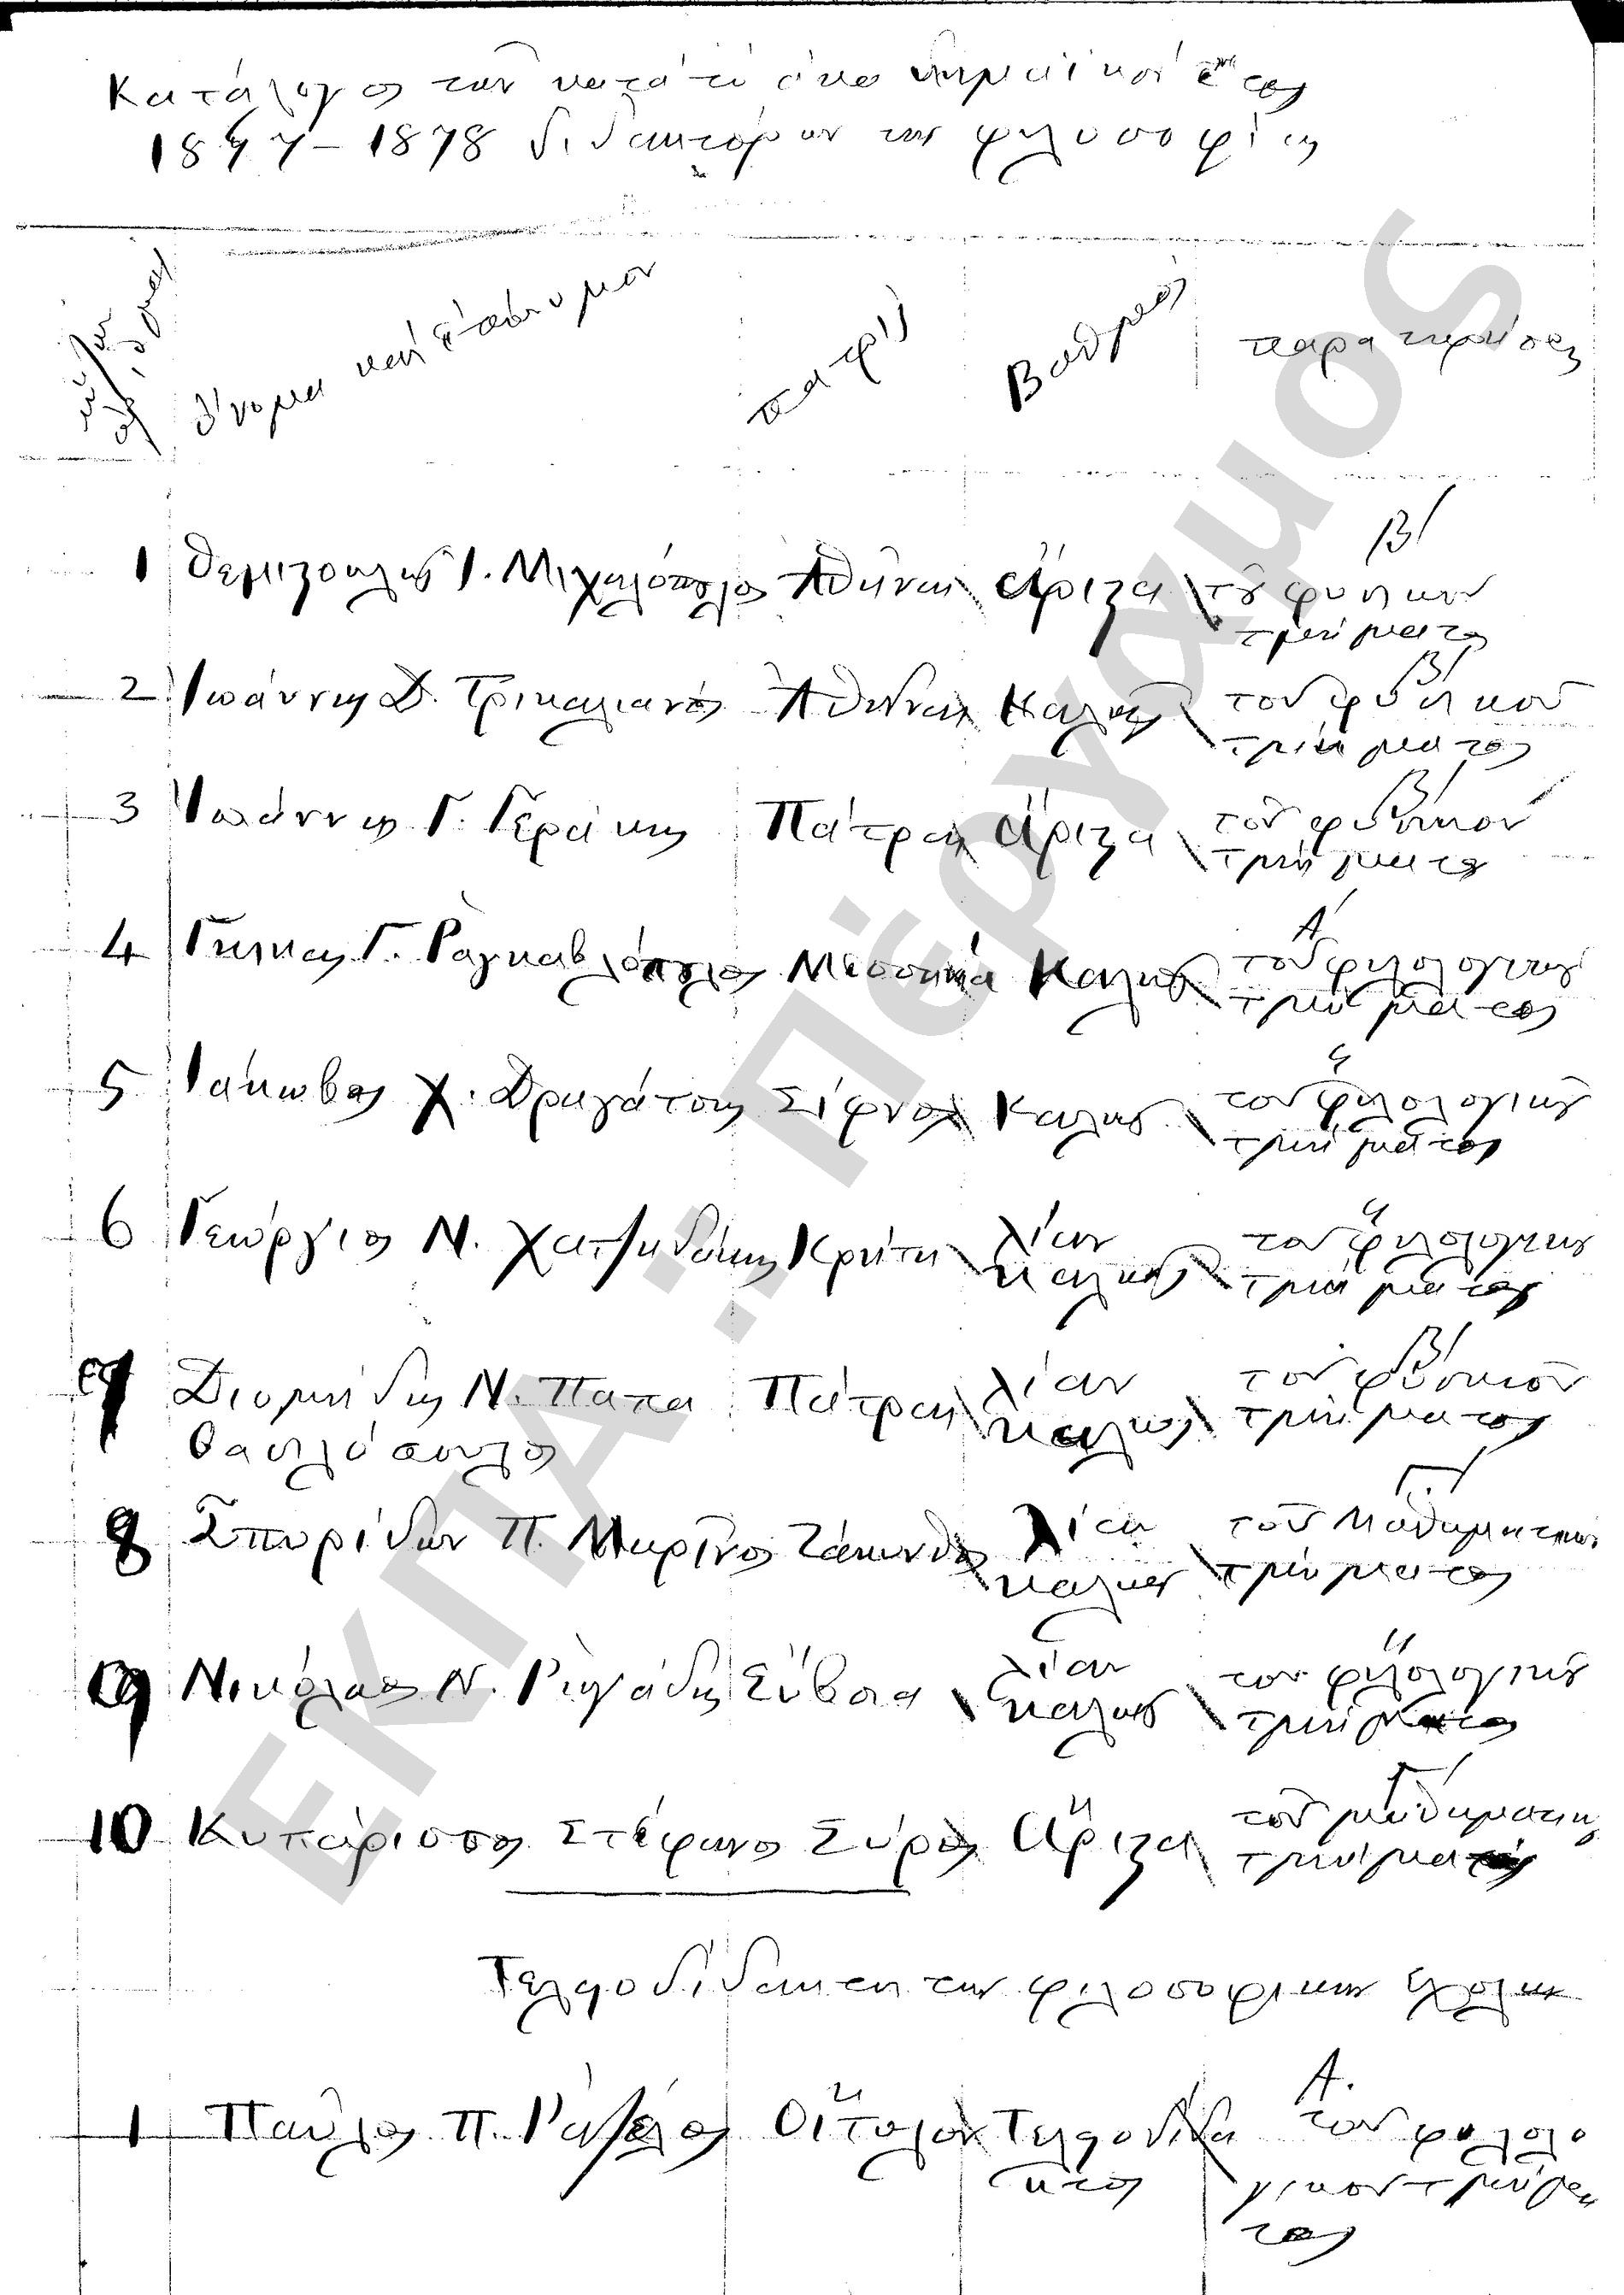 Κατάλογος τῶν κατὰ τὸ ἀκαδημαϊκὸν ἔτος
1877-1878 διδακτόρων της φιλοσοφίας
ὄνομα καὶ ἐπώνυμον πατρὶς Βαθμὸς παρατηρήσεις
Β΄
1 Θεμιστοκλῆς Ι. Μιχαλόπουλος Ἀθῆναι ἄριστα τοῦ φυσικοῦ
τμήματος
Β΄
2 Ἰωάννης Δ. Τρικαλιανός Ἀθῆναι Καλῶς τοῦ φυσικοῦ
τμήματος
Β΄
3 Ἰωάννης Γ. Γεράκης Πάτραι ἄριστα τοῦ φυσικοῦ
τμήματος
Α΄
4 Γ. Μεσσηνία Καλῶς τοῦ φιλολογικοῦ
τμήματος
5 Ἰάκωβος Χ. Δραγάτσης Σίφνος Καλῶς τοῦ φιλολογικοῦ
τμήματος
6 Γεώργιος Ν. Χατζηδάκης Κρήτη λίαν τοῦ φιλολογικοῦ
καλῶς τμήματος
Β΄
7 Διομήδης Ν. Παπα Πάτραι λίαν τοῦ φυσικοῦ
καλῶς τμήματος
Γ΄
8 Σπυρίδων Π. Μαρῖνος Ζάκυνθος λίαν τοῦ Μαθηματικοῦ
καλῶς τμήματος
9 Νικόλαος Ν. Ῥηγάδης Εὔβοια λίαν τοῦ φιλολογικοῦ
καλῶς τμήματος
Γ΄
10 Κυπάρισσος Στέφανος Σύρος ἄριστα τοῦ μαθηματικοῦ
τμήματος
Τελειοδίδακτοι τῆς φιλοσοφικῆς Σχολῆς
Α.
1 Παῦλος Π. Οἴτυλον Τελειοδίδα τοῦ φιλολο
κτος γικοῦ τμήμα
τος
ΕΚΠΑ: Πέργαμος